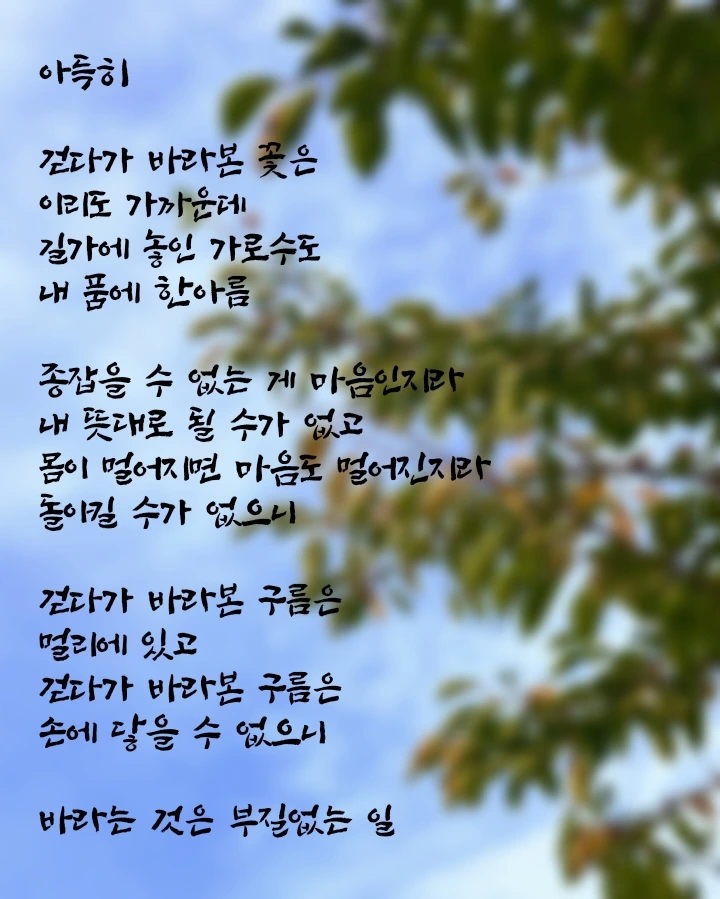 아득히
걷다가 바라본 꽃은
이리도 가까운데
길가에 놓인 가로수도
내 품에 한아름
종잡을 수 없는 게 마음인지라
내 뜻대로 될 수가 없고
몸이 멀어지면 마음도 멀어진지라
돌이킬 수가 없으니
걷다가 바라본 구름은
멀리에 있고
걷다가 바라본 구름은
손에 닿을 수 없으니
바라는 것은 부질없는 일